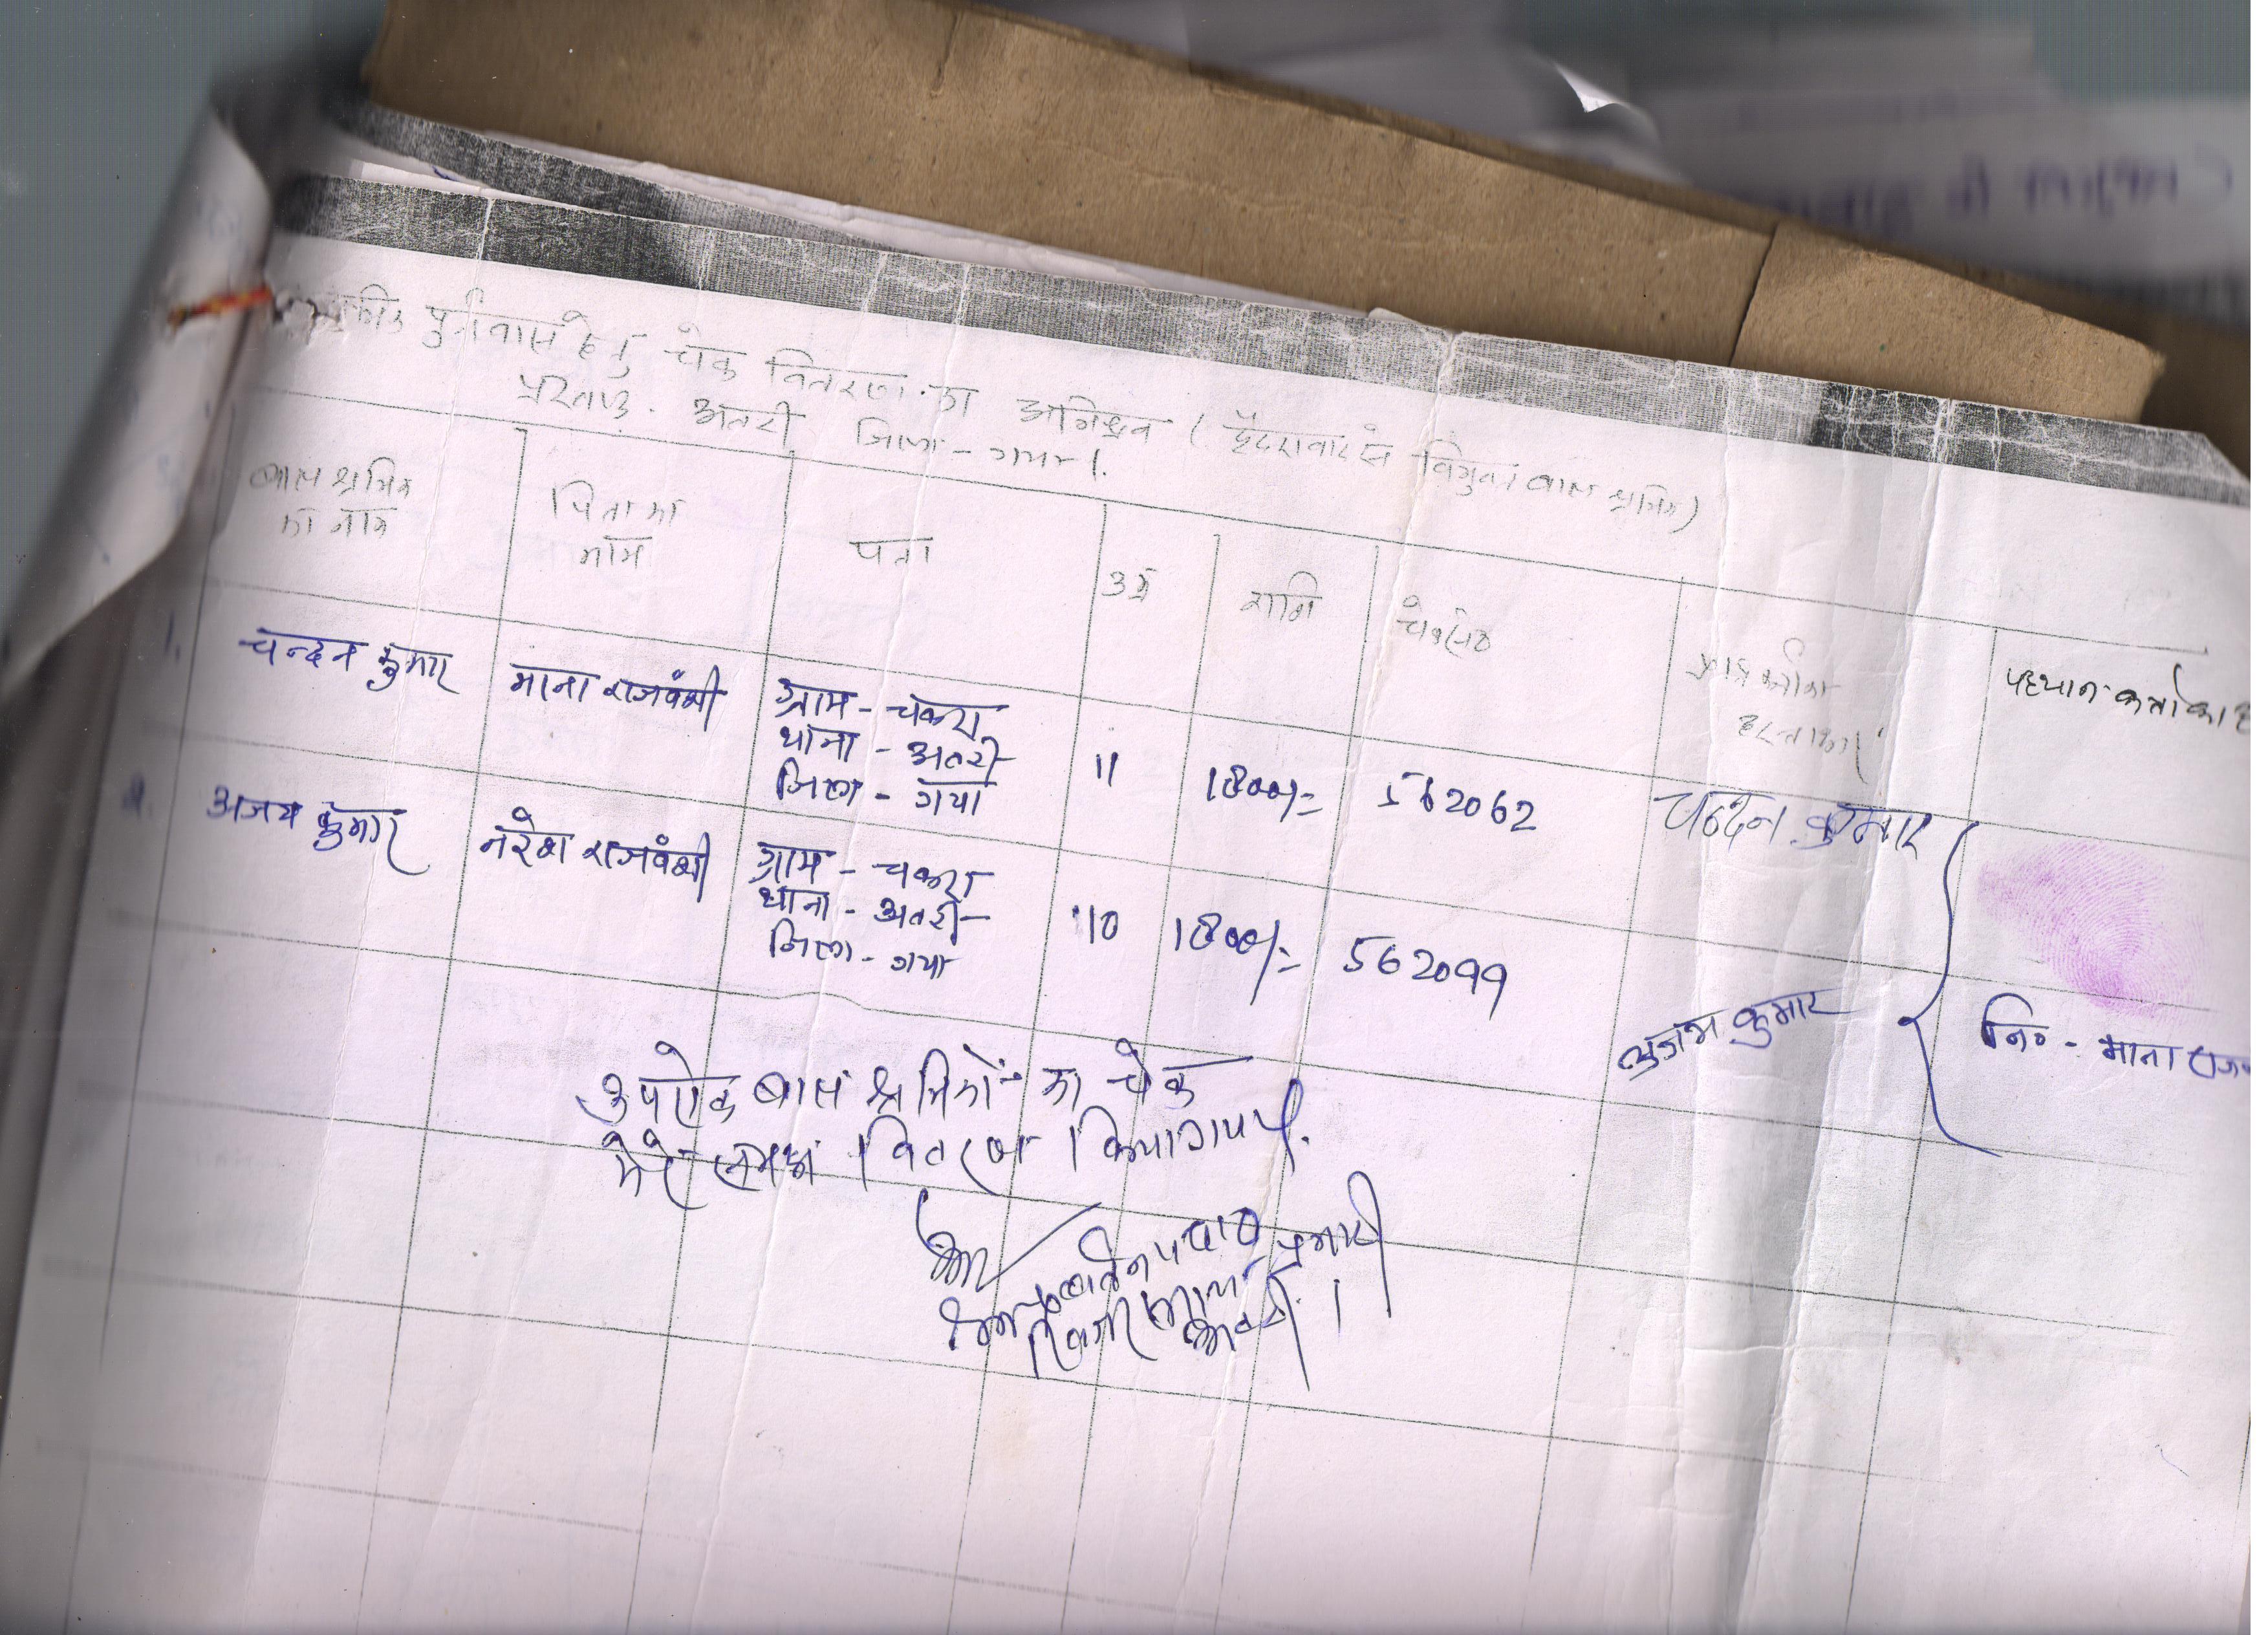 पुर्नवास हेतु चेक वितरण का अभिश्रव ( हैदराबाद से विमुक्त बाल श्रमिक)
प्रखण्ड - अतरी जिला - गया।
बाल श्रमिक का नाम
पिता का नाम
पता
उम्र
राशि
चेक सं०
हस्ताक्षर
पहचान कर्ता का ह
1. चन्दन कुमार माना राजवंशी ग्राम - चकरा
थाना - अतरी
जिला - गया
11 1800/= 562062 चन्दन कुमार
2. अजय कुमार नरेश राजवंशी ग्राम - चकरा
थाना - अतरी
जिला - गया
10 1800/= 562099 अजय कुमार
नि० - माना राज
उपरोक्त बाल श्रमिकों का चेक
मेरे समक्ष वितरण किया गया।
श्रम प्रवर्तन पदा० प्रभारी
अतरी।